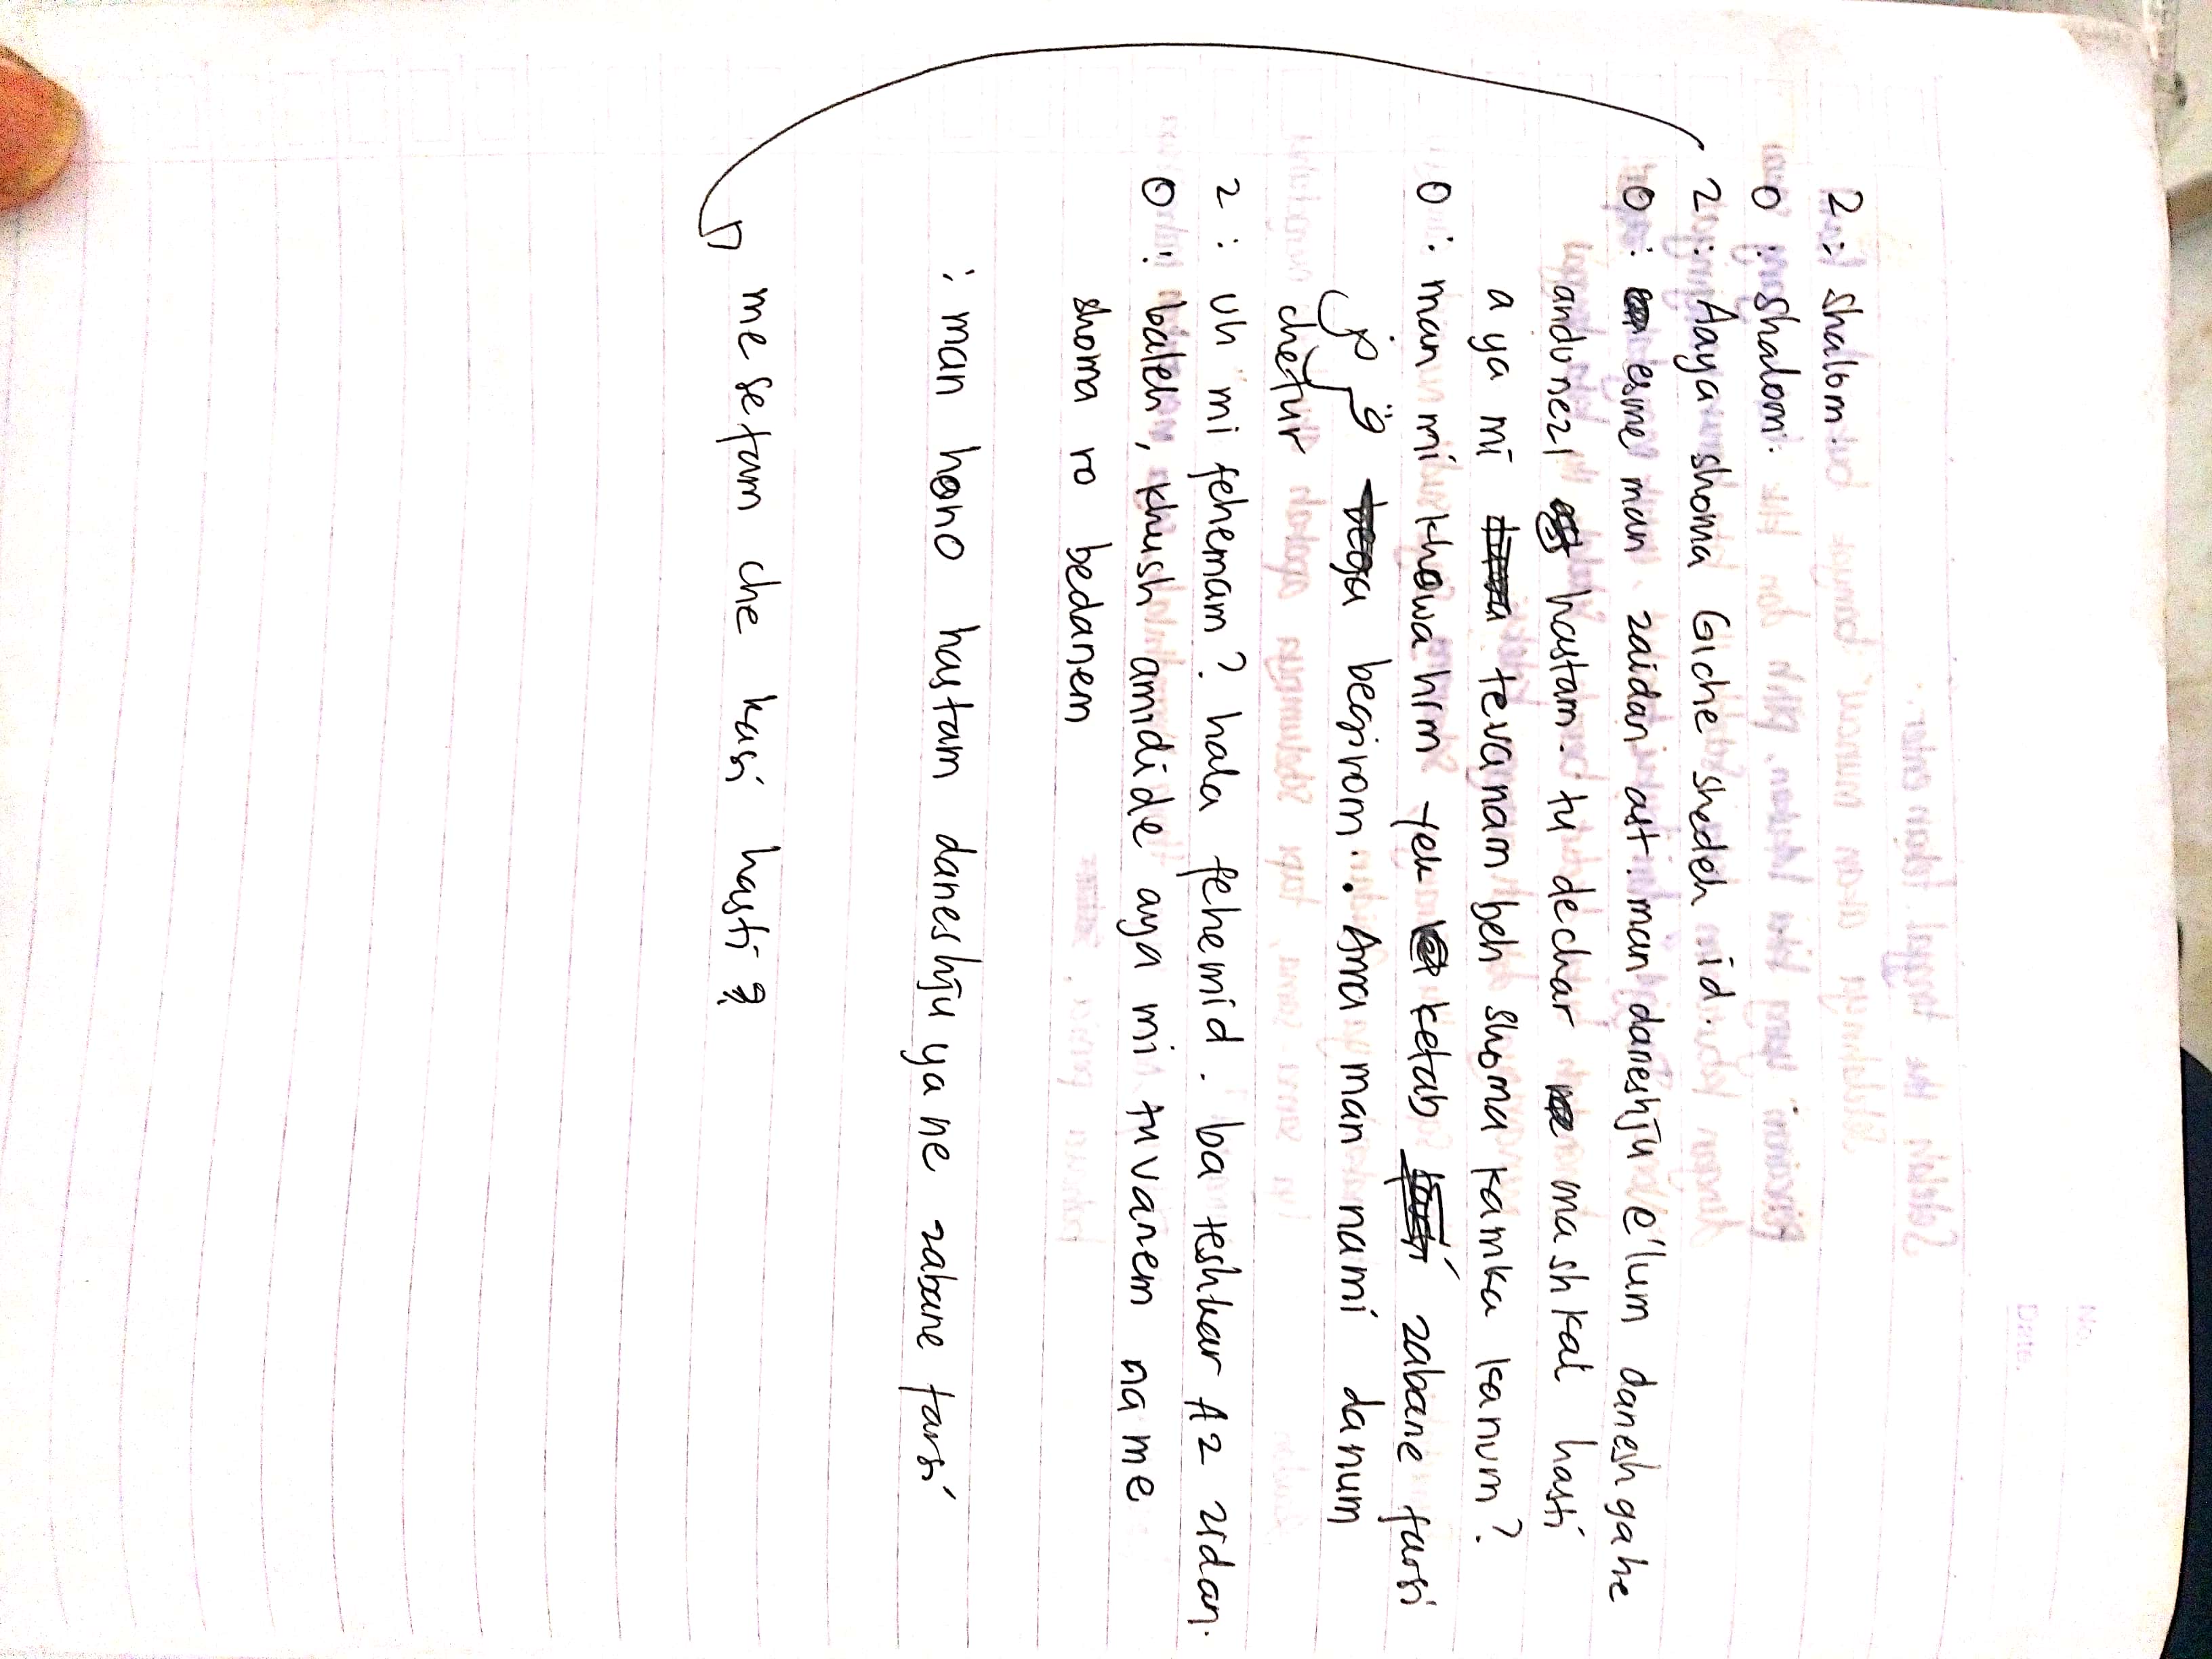 2 : shalom.
O : shalom.
2 : Aaya shoma Giche shedeh id.
O : esme man zaidan ast. man daneshju e'lum daneshgahe
andunezi hastam. tu dechar mashkal hasti
aya mi tevanam beh shoma kamka kanum?
O : man mi khowahim yek ketab zabane farsi
begirom. Ama man nami danum
chetur
2 : uh mi fehemam? hala fehemid. ba teshkar Az zidan.
O : baleh, khush amidide aya mi tuvanem name
shoma ro bedanem
: man hono hastam daneshju yane zabane farsi
me setam che kasi hasti?